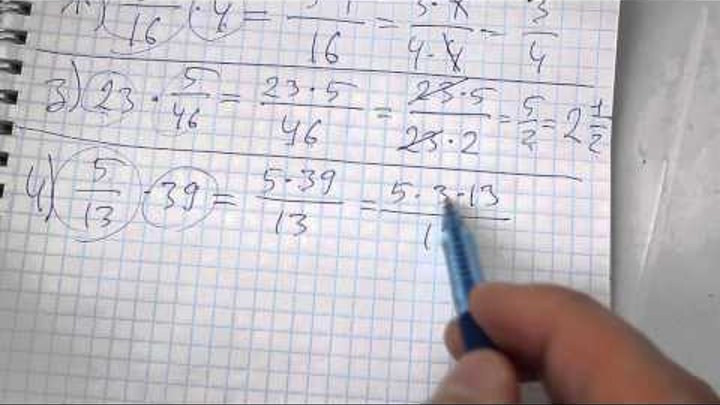 16 · 4 = 16 = 3·4 / 4·4 = 3/4
3) 23 · 5/46 = 23·5/46 = 23·5/23·2 = 5/2 = 2 1/2
4) 5/13 · 39 = 5·39/13 = 5·3·13/1